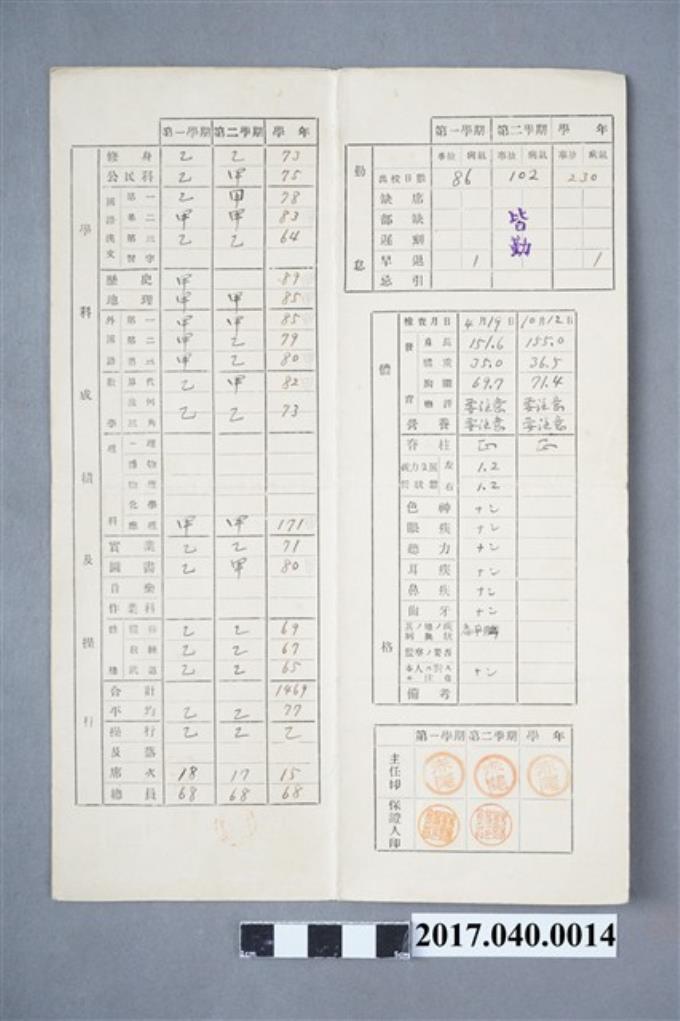 第一學期 第二學期 學年
學科成績及操行
修身 乙 乙 73
公民科 乙 甲 75
國語漢文
第一 乙 甲 78
第二 甲 甲 83
第三 乙 乙 64
習字
歷史 甲 89
地理 甲 甲 85
外國語
第一 甲 甲 85
第二 甲 乙 79
第三 甲 乙 80
數學
代 乙 甲 82
幾何
三角 乙 乙 73
理科
一理
博物
物理
化學
應理 甲 甲 171
實業 乙 乙 71
圖畫 乙 甲 80
音樂
作業科
乙 乙 69
教練 乙 乙 67
武道 乙 乙 65
合計 1469
平均 乙 乙 77
操行 乙 乙 乙
及落
席次 18 17 15
總員 68 68 68
第一學期 第二學期 學年
勤怠
事故 病氣 事故 病氣 事故 病氣
出校日數 86 102 230
缺席
部缺
遲刻
早退 1 1
忌引
皆勤
體格
檢查月日 4月19日 10月12日
發育
身長 151.6 155.0
體重 35.0 36.5
胸圍 69.7 71.4
概評 要注意 要注意
營養 要注意 要注意
脊柱 正 正
視力及屈折狀態
左 1.2
右 1.2
色神 ナシ
眼疾 ナシ
聽力 ナシ
耳疾 ナシ
鼻疾 ナシ
齒牙 ナシ
其ノ他ノ疾病異狀
監察ノ要否
本人ニ對スル注意 ナシ
備考
第一學期 第二學期 學年
主任印
保證人印
2017.040.0014